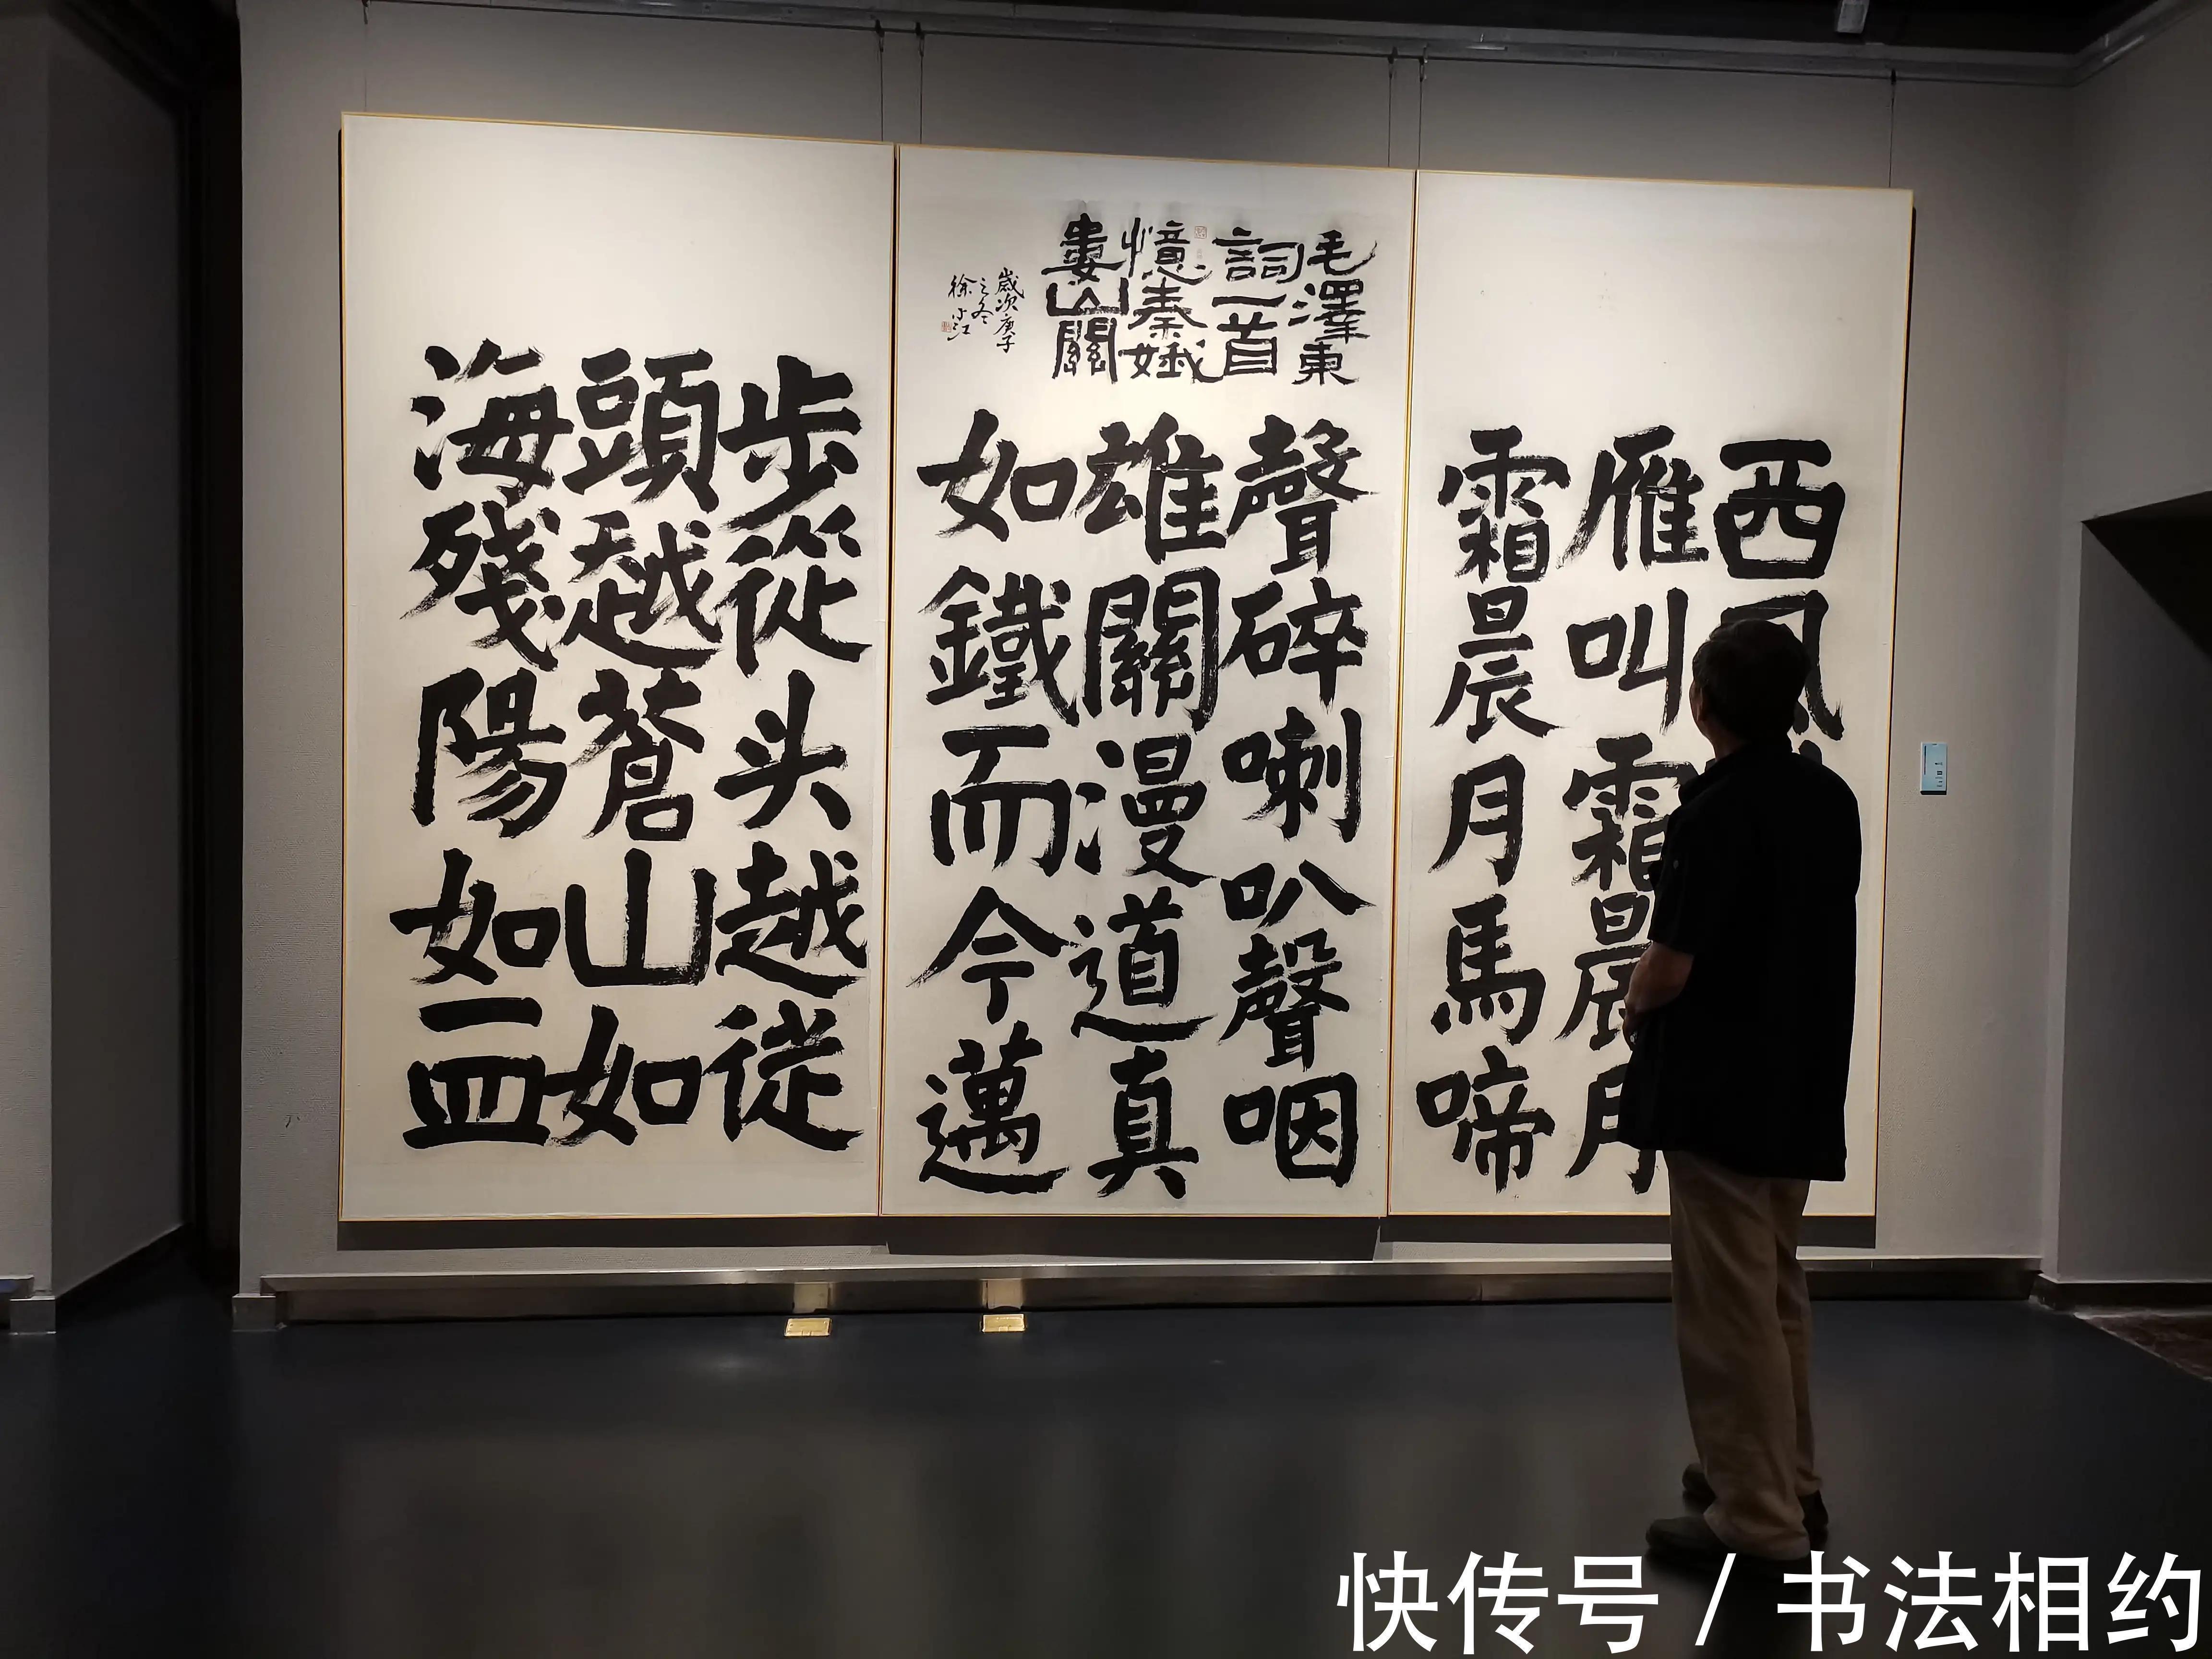 西
雁叫霜晨月
霜晨月馬啼
毛澤東
詞一首
憶秦娥
婁山關
歲次庚子
之冬
徐小江
聲碎喇叭聲咽
雄關漫道真
如鐵而今邁
步從头越從
頭越蒼山如
海殘陽如血
快传号 / 书法相约